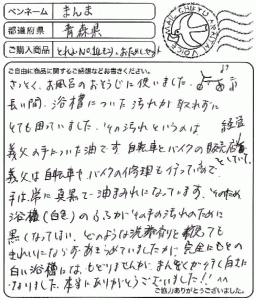 ペンネーム まんま
都道府県 青森県
ご購入商品 とれるNo.1ゼリー、おためしセット
ご自由に商品に関するご感想などお書きください。
さっそく、お風呂のおそうじに使いました。
長い間、浴槽についた汚れが取れずに
とても困っていました。その汚れというのは
義父の手についた油です。自転車とバイクの販売店を経営
していて、
義父は自転車やバイクの修理も行っているので、
手は常に真黒で油まみれになっています。そのため
浴槽(白色)のふちがその手の汚れのために
黒くなってしまい、どのような洗剤を使っても
きれいにならずあきらめていましたが、完全にもとの
白い浴槽にはもどりませんが、まんぞくがいく白さに
なりました。本当にありがとうございました!!
ご協力ありがとうございました。